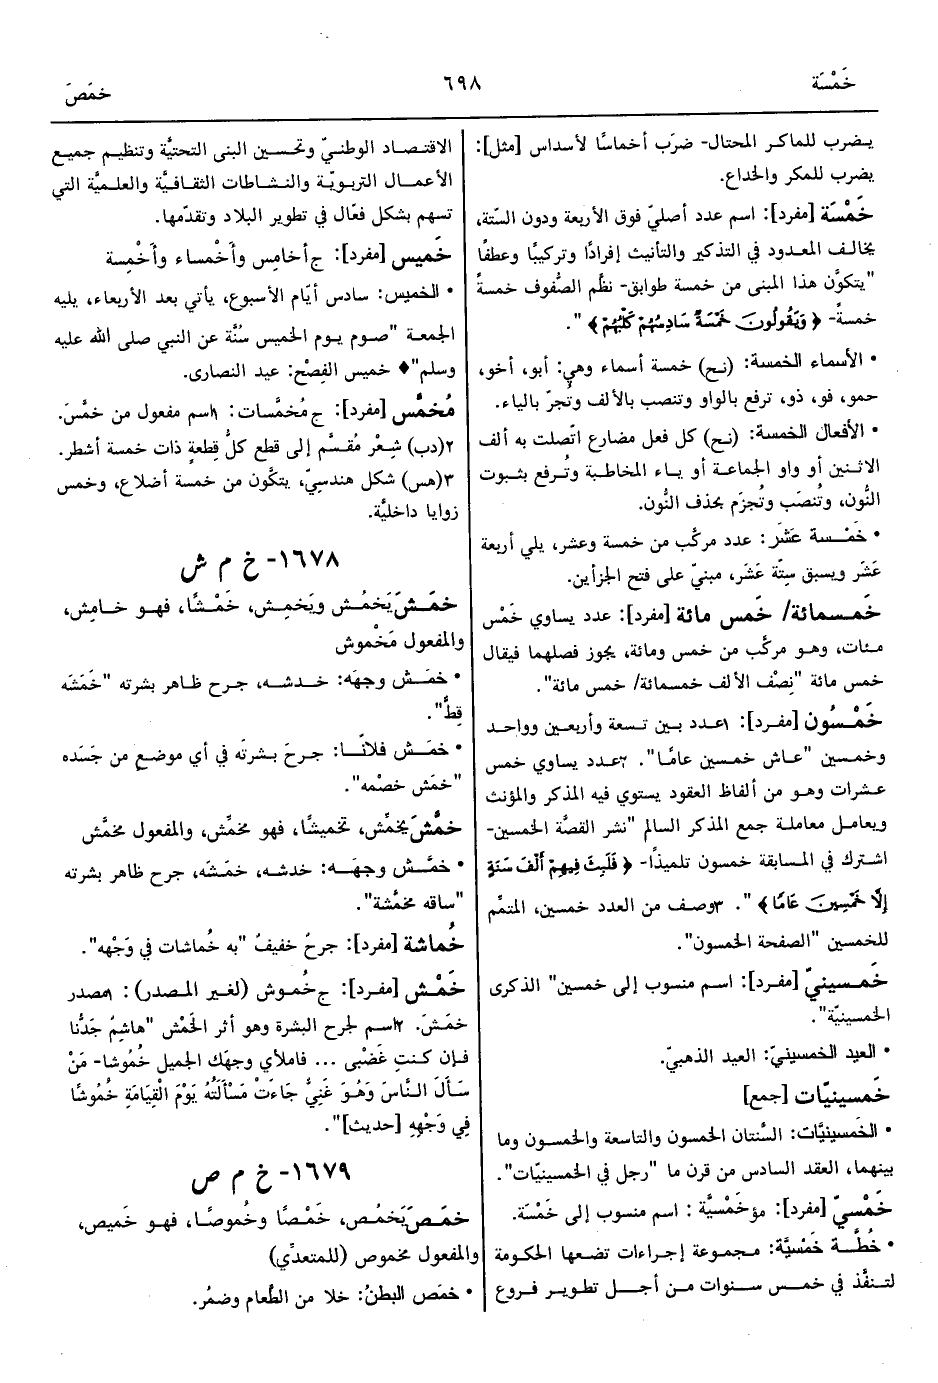 خَمْسَة
٦٩٨
خمَصَ
يضرب للماكر المحتال- ضرَب أخماسًا لأسداس [مثل]:
يضرب للمكر والخداع.
خَمْسَة [مفرد]: اسم عدد أصليّ فوق الأربعة ودون السّتة،
يخالف المعدود في التذكير والتأنيث إفرادًا وتركيبًا وعطفًا
"يتكوَّن هذا المبنى من خمسة طوابق- نظَّم الصُّفوف خمسةً
خمسةً- ﴿وَيَقُولُونَ خَمْسَةٌ سَادِسُهُمْ كَلْبُهُمْ﴾".
• الأسماء الخمسة: (نح) خمسة أسماء وهي: أبو، أخو،
حمو، فو، ذو، ترفع بالواو وتنصب بالألف وتُجرّ بالياء.
• الأفعال الخمسة: (نح) كل فعل مضارع اتّصلت به ألف
الاثنين أو واو الجماعة أو ياء المخاطبة وتُرفع بثبوت
النُّون، وتُنصَب وتُجزَم بحذف النُّون.
• خَمْسة عَشَر: عدد مركَّب من خمسة وعشر، يلي أربعة
عَشَر ويسبق ستَّة عَشَر، مبنيّ على فتح الجزأين.
خَمسمائة/ خَمس مائة [مفرد]: عدد يساوي خَمْس
مئات، وهو مركَّب من خمس ومائة، يجوز فصلهما فيقال
خمس مائة "نِصْف الألف خمسمائة/ خمس مائة".
خَمْسُون [مفرد]: ١عدد بين تسعة وأربعين وواحد
وخمسين "عاش خمسين عامًا". ٢عدد يساوي خمس
عشرات وهو من ألفاظ العقود يستوي فيه المذكر والمؤنث
ويعامل معاملة جمع المذكر السالم "نشر القصَّة الخمسين-
اشترك في المسابقة خمسون تلميذًا- ﴿فَلَبِثَ فِيهِمْ أَلْفَ سَنَةٍ
إِلَّا خَمْسِينَ عَامًا﴾". ٣وصف من العدد خمسين، المتمِّم
للخمسين "الصفحة الخمسون".
خَمْسينيّ [مفرد]: اسم منسوب إلى خمسين" الذكرى
الخمسينيّة".
• العيد الخمسينيّ: العيد الذهبيّ.
خَمسينيّات [جمع]
• الخَمسينيَّات: السَّنتان الخمسون والتاسعة والخمسون وما
بينهما، العقد السادس من قرن ما "رجل في الخمسينيّات".
خَمْسيّ [مفرد]: مؤخَمْسيَّة: اسم منسوب إلى خَمْسَة.
• خُطَّة خَمْسيَّة: مجموعة إجراءات تضعها الحكومة
لتنفَّذ في خمس سنوات من أجل تطوير فروع
الاقتصاد الوطنيّ وتحسين البنى التحتيَّة وتنظيم جميع
الأعمال التربويّة والنشاطات الثقافيَّة والعلميَّة التي
تسهم بشكل فعّال في تطوير البلاد وتقدّمها.
خَميس [مفرد]: ج أخامِس وأَخْمساء وأَخْمِسة
• الخميس: سادس أيّام الأسبوع، يأتي بعد الأربعاء، يليه
الجمعة "صوم يوم الخميس سُنَّة عن النبي صلى الله عليه
وسلم"♦ خميس الفِصْح: عيد النصارى.
مُخمَّس [مفرد]: ج مُخمَّسات: ١اسم مفعول من خمَّسَ.
٢(دب) شِعْر مُقسَّم إلى قطع كلُّ قطعةٍ ذات خمسة أشطر.
٣(هس) شكل هندسيّ، يتكَّون من خمسة أضلاع، وخمس
زوايا داخليَّة.
١٦٧٨- خ م ش
خمَشَ يَخمُش ويَخمِش، خَمْشًا، فهو خامِش،
والمفعول مَخْموش
• خمَش وجهَه: خدشه، جرح ظاهر بشرته "خَمَشَه
قِطٌّ".
• خمَش فلانًا: جرحَ بشرتَه في أي موضع من جَسَده
"خمَش خصْمه".
خمَّشَ يخمِّش، تخميشًا، فهو مخمِّش، والمفعول مخمَّش
• خمَّش وجهَه: خدشه، خمَشَه، جرح ظاهر بشرته
"ساقه مخمَّشة".
خُماشة [مفرد]: جرحٌ خفيفٌ "به خُماشات في وَجْهه".
خَمْش [مفرد]: ج خُموش (لغير المصدر): ١مصدر
خمَشَ. ٢اسم لجرح البشرة وهو أثر الخَمْش "هاشِمُ جَدُّنا
فإن كنتِ غَضْبى ... فاملأي وجهَكِ الجميل خُمُوشا- مَنْ
سَأَلَ النَّاسَ وَهُوَ غَنِيٌّ جَاءَتْ مَسْأَلَتُهُ يَوْمَ الْقِيَامَةِ خُمُوشًا
فِي وَجْهِهِ [حديث]".
١٦٧٩- خ م ص
خمَصَ يَخمُص، خَمْصًا وخُموصًا، فهو خَميص،
والمفعول مخموص (للمتعدِّي)
• خمَص البطنُ: خلا من الطَّعام وضمُر.